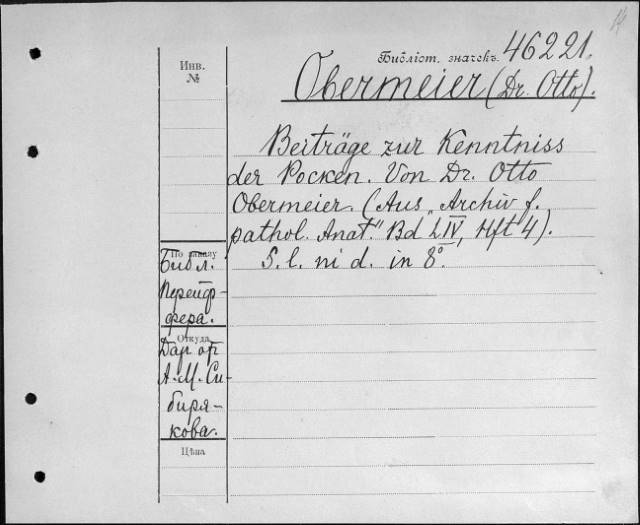 Библіот. значекъ 46221.
Инв.
№
Obermeier (Dr. Otto).
Beiträge zur Kenntniss
der Pocken. Von Dr. Otto
Obermeier. (Aus „Archiv f.
pathol. Anat." Bd LIV, Hft 4).
S. l. ni d. in 8°.
По заказу
Библ.
Откуда
Дар от
А. М. Си-
биря-
кова.
Цѣна